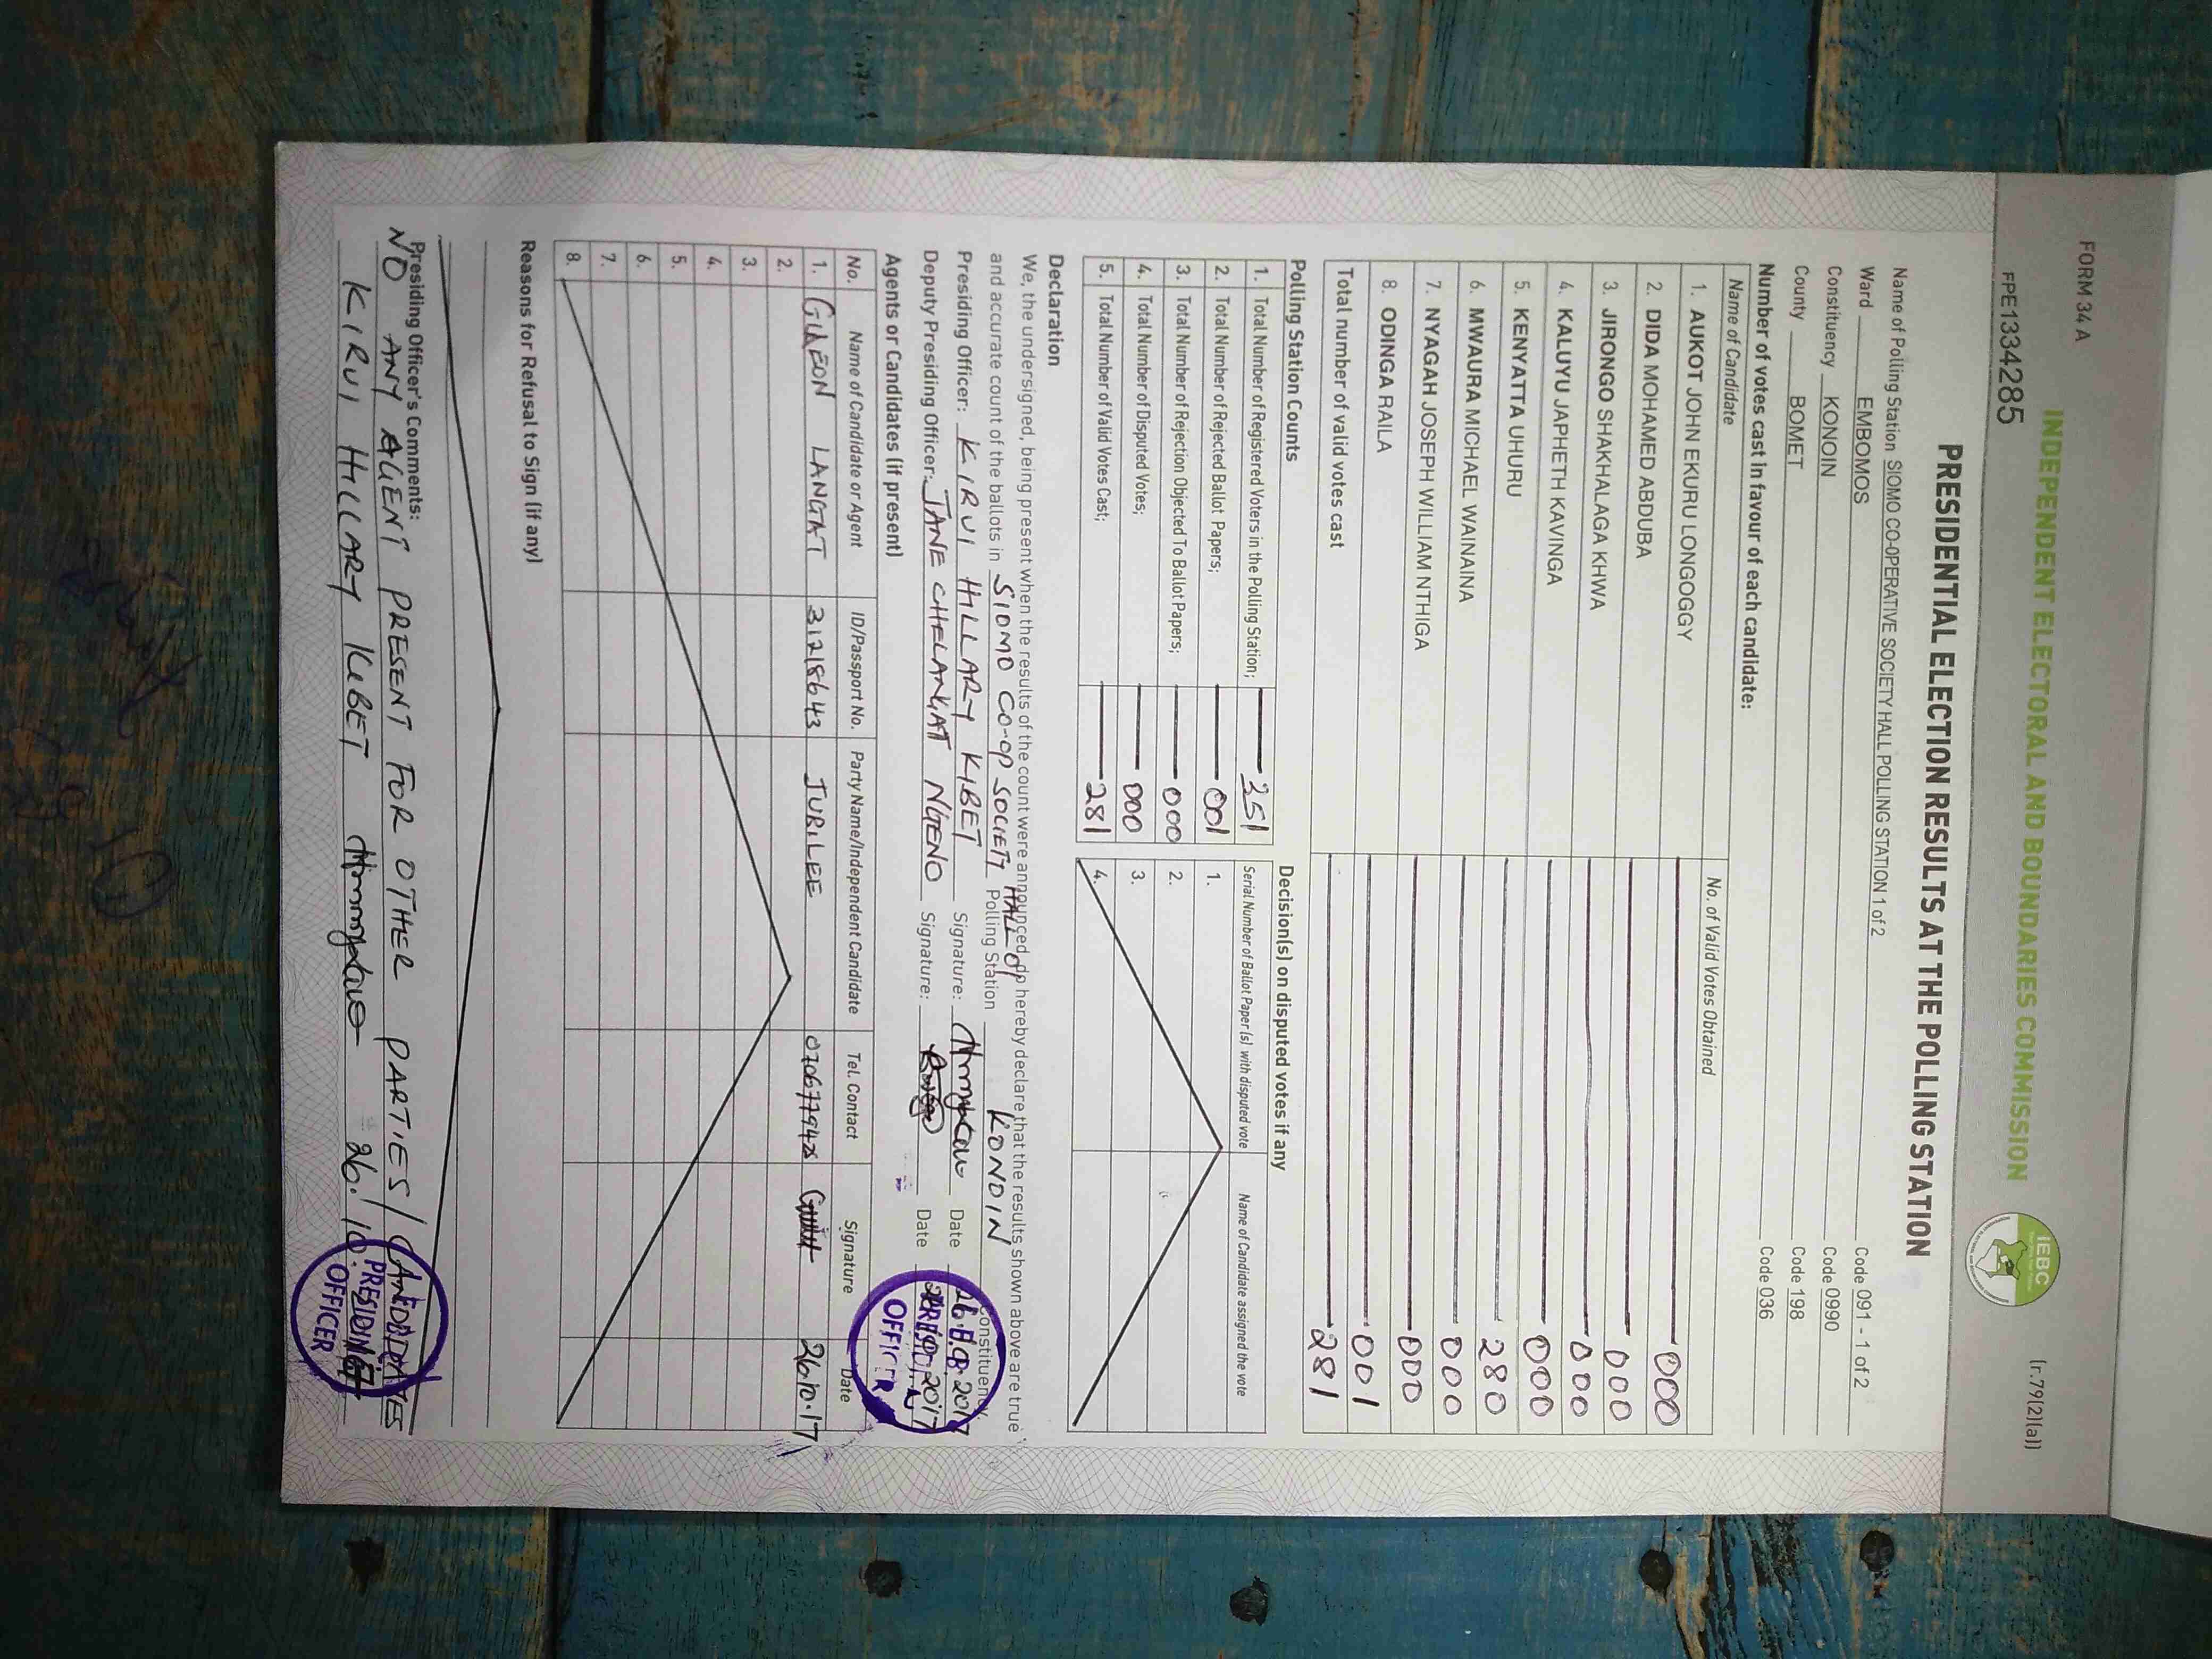 FORM 34 A
(r.79(2)(a))
INDEPENDENT ELECTORAL AND BOUNDARIES COMMISSION
IEBC
PRE1334285
PRESIDENTIAL ELECTION RESULTS AT THE POLLING STATION
Name of Polling Station SIOMO CO-OPERATIVE SOCIETY HALL POLLING STATION 1 of 2 Code 091 - 1 of 2
Ward EMBOMOS Code 0990
Constituency KONOIN Code 198
County BOMET Code 036
Number of votes cast in favour of each candidate:
Name of Candidate No. of Valid Votes Obtained
1. AUKOT JOHN EKURU LONGOGGY 000
2. DIDA MOHAMED ABDUBA 000
3. JIRONGO SHAKHALAGA KHWA 000
4. KALUYU JAPHETH KAVINGA 000
5. KENYATTA UHURU 280
6. MWAURA MICHAEL WAINAINA 000
7. NYAGAH JOSEPH WILLIAM NTHIGA 000
8. ODINGA RAILA 001
Total number of valid votes cast 281
Polling Station Counts
1. Total Number of Registered Voters in the Polling Station; 351
2. Total Number of Rejected Ballot Papers; 001
3. Total Number of Rejection Objected To Ballot Papers; 000
4. Total Number of Disputed Votes; 000
5. Total Number of Valid Votes Cast; 281
Decision(s) on disputed votes if any
Serial Number of Ballot Paper (s) with disputed vote Name of Candidate assigned the vote
1.
2.
3.
4.
Declaration
We, the undersigned, being present when the results of the count were announced, do hereby declare that the results shown above are true
and accurate count of the ballots in SIOMO CO-OP SOCIETY HALL 01 Polling Station KONOIN Constituency
Presiding Officer: KIRUI HILLARY KIBET Signature: Date 26.10.2017
Deputy Presiding Officer: JANE CHELANGAT NGENO Signature: Date 2017
PRESIDING
OFFICER
Agents or Candidates (if present)
No. Name of Candidate or Agent ID/Passport No. Party Name/Independent Candidate Tel. Contact Signature Date
1. GIDEON LANGAT 31218643 JUBILEE 26.10.17
2.
3.
4.
5.
6.
7.
8.
Reasons for Refusal to Sign (if any)
Presiding Officer's Comments:
NO ANY AGENT PRESENT FOR OTHER PARTIES/CANDIDATES
KIRUI HILLARY KIBET 26.10.
PRESIDING
OFFICER